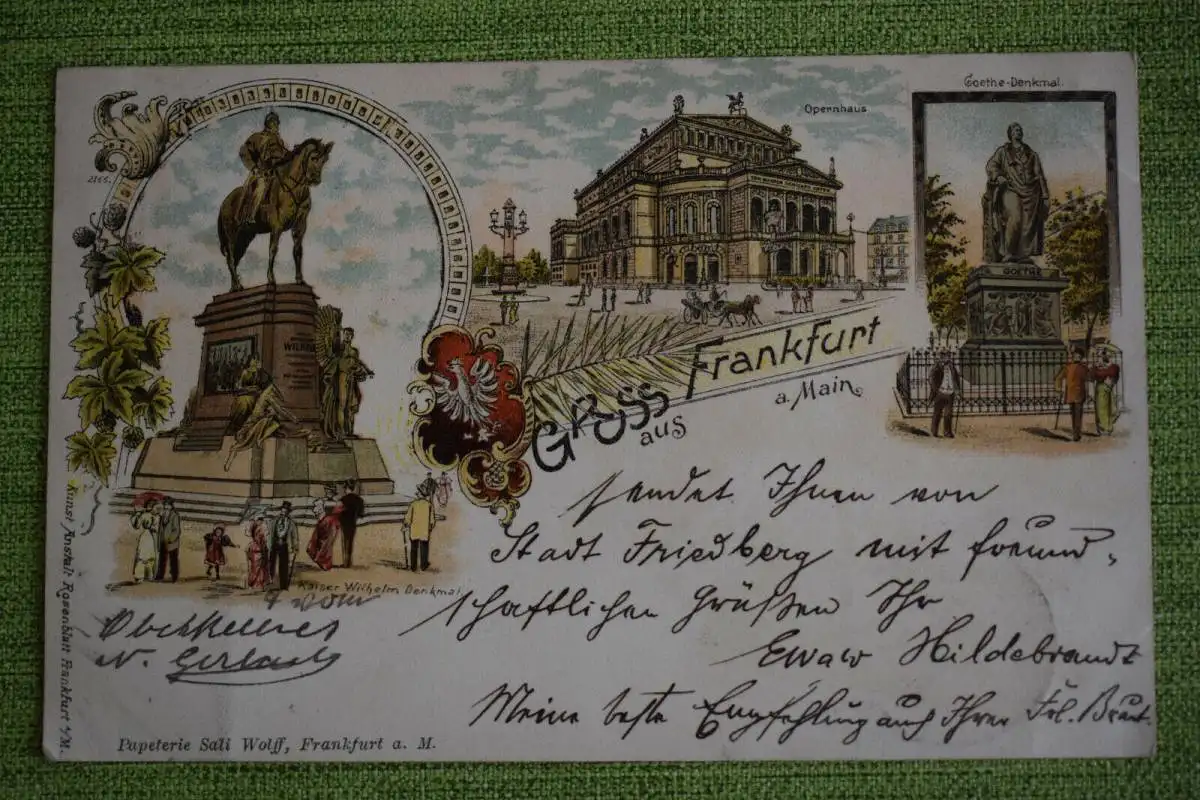 Goethe-Denkmal.
Opernhaus
2165.
GOETHE
WILHELM
Gruss
aus
Frankfurt
a. Main
Kaiser Wilhelm Denkmal.
sendet Ihnen von
Stadt Friedberg mit freund-
schaftlichen Grüßen Ihr
Ewald Hildebrandt
Meine beste Empfehlung auch Ihrer Frl. Braut.
vom
Oberkellner
N. Gerlach
Kunst Anstalt Rosenblatt Frankfurt a/M.
Papeterie Sali Wolff, Frankfurt a. M.